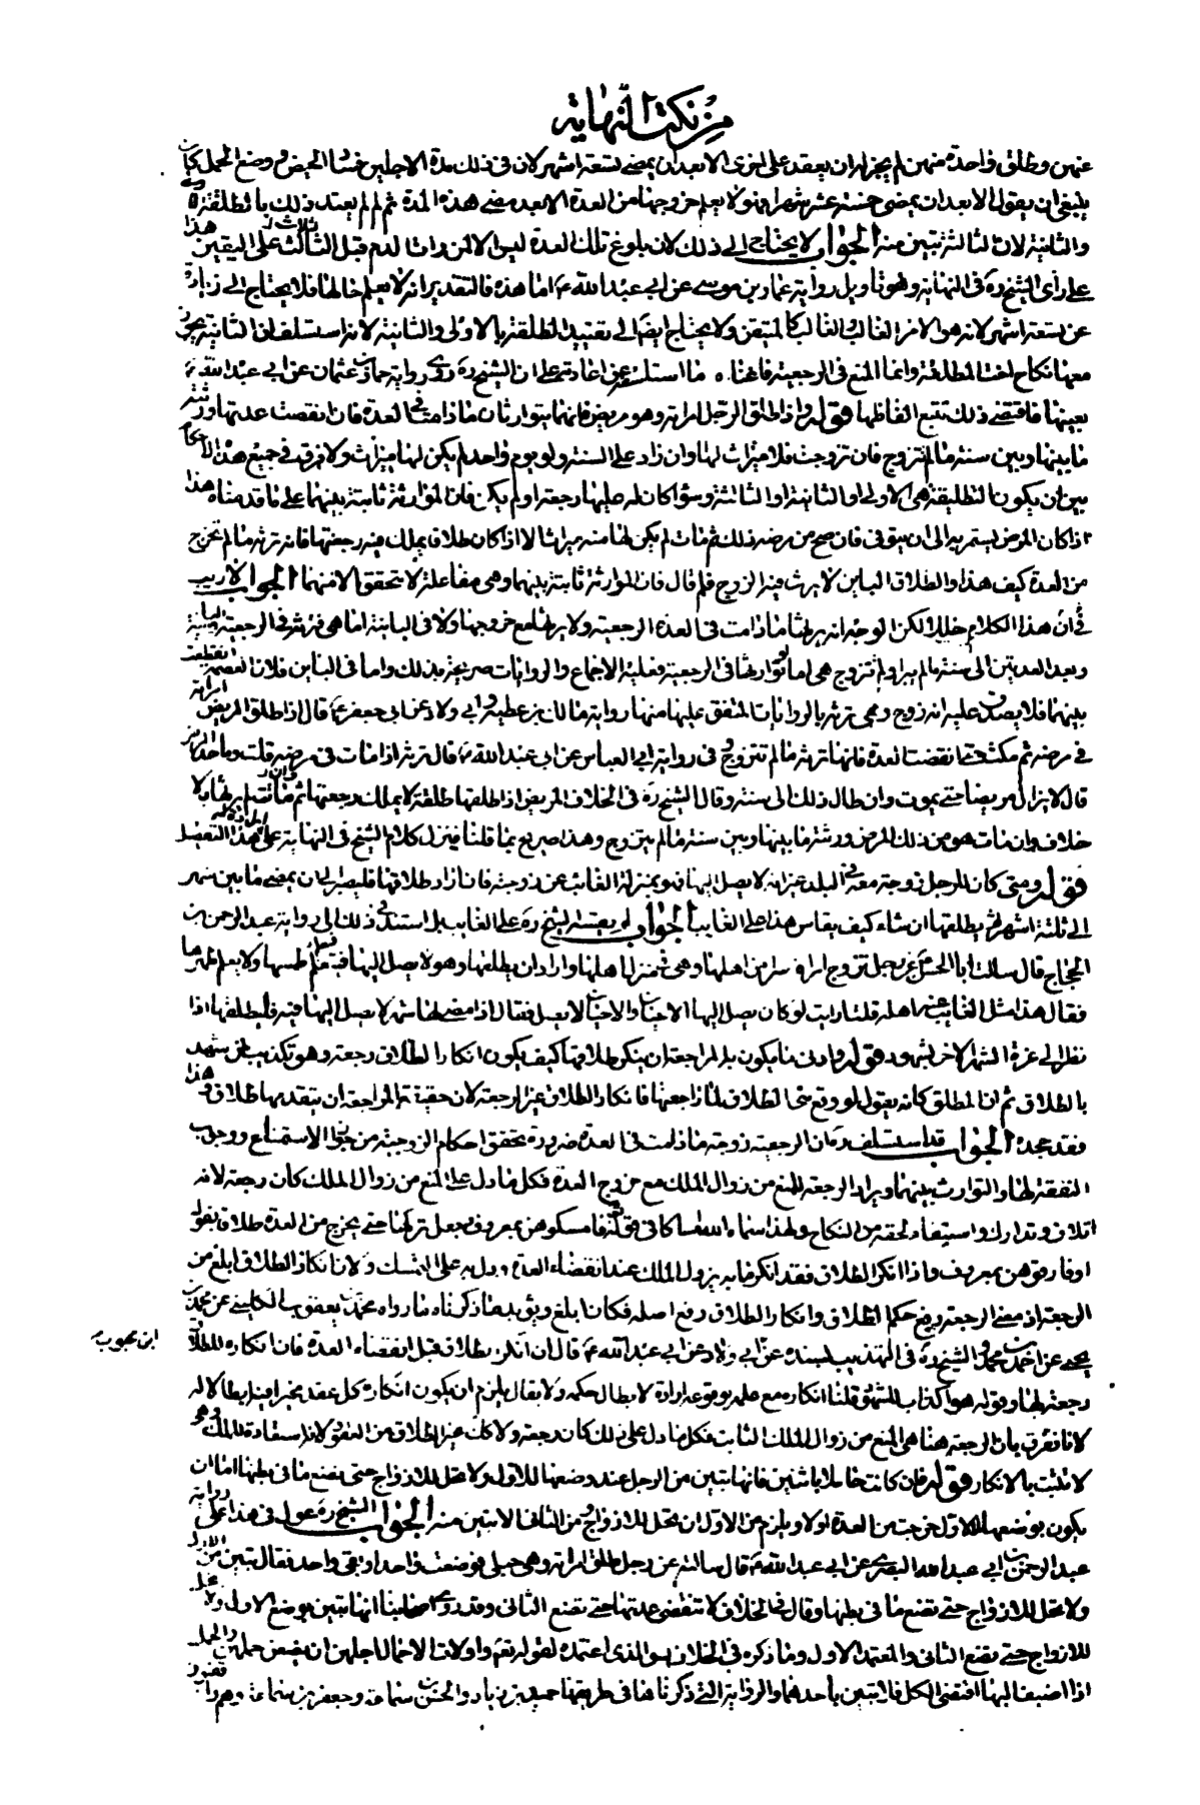 من نكت النهاية
عنهن وطلق واحدة منهن لم يجز له ان يعقد على اخرى الا بعد ان يمضى تسعة اشهر لان فى ذلك مدة الاجلين الحيض ووضع الحمل كان
ينبغى ان يقول الا بعد ان يمضى خمسة عشر شهرا فهو لا يعلم خروجها من العدة الا بعد مضى هذه المدة ثم لم لم يعتد ذلك بالطلقة
والثانية لان الثالثة تبين منه الجواب لا يحتاج الى ذلك لان بلوغ تلك العدة ليس الا لمن رات الدم قبل الثالث على اليقين هذا
على راى الشيخ ره فى النهاية وهو تاويل رواية عمار بن موسى عن ابى عبد الله ع اما هذه فالتقدير انه لا يعلم حالها فلا يحتاج الى زيادة
عن تسعة اشهر لانه هو الامر الغالب والغالب كالمتيقن ولا يحتاج ايضا الى تقييد الطلقة بالاولى والثانية لانه استسلف ان الثانية يجوز
معها نكاح اخت المطلقة وانما المنع فى الرجعية فاغنانا ما استسلفه عن اعادته على ان الشيخ ره روى رواية حماد بن عثمان عن ابى عبد الله ع
بعينها فاقتضى ذلك تتبع الفاظها قوله واذا طلق الرجل امراته وهو مريض فانهما يتوارثان ما دامت فى العدة فان انقضت عدتها ورثته
ما بينها وبين سنة ما لم تتزوج فان تزوجت فلا ميراث لها وان زاد على السنة ولو يوم واحد لم يكن لها ميراث ولا فرق فى جميع هذه الاحكام
بين ان يكون التطليقة هى الاولى او الثانية او الثالثة وسواء كان له عليها رجعة او لم يكن فان الموارثة ثابتة بينهما على ما قدمناه هذا
اذا كان المرض يستمر به الى ان يتوفى فان صح من مرضه ذلك ثم مات لم يكن لها منه ميراث الا اذا كان طلاقا يملك فيه رجعتها فانه ترثه ما لم تخرج
من العدة كيف هذا والطلاق الباين لا يرث فيه الزوج فلم قال فان الموارثة ثابتة بينهما وهى مفاعلة لا يتحقق الا منهما الجواب لا ريب
فى ان هذا الكلام خللا لكن الوجه انه يرثها ما دامت فى العدة الرجعية ولا يرثها مع خروجها ولا فى البائنة اما هى فترثه فى الرجعية والبائنة
وبعد العدتين الى سنة ما لم يبرا ولم تتزوج هى اما توارثها فى الرجعية فعليه الاجماع والروايات صريحة بذلك واما فى الباين فلان العصمة انقطعت
بينهما فلا يصدق عليه انه زوج وهى ترثه بالروايات المتفق عليها منها رواية مالك بن عطية وابى ولاد عن ابى جعفر ع قال اذا طلق المريض امراته
فى مرضه ثم مكث حتى انقضت العدة فانها ترثه ما لم تتزوج وفى رواية ابى العباس عن ابى عبد الله ع قال ترثه اذا مات فى مرضه قلت وما حد المرض
قال لا يزال مريضا حتى يموت وان طال ذلك الى سنة وقال الشيخ ره فى الخلاف المريض اذا طلقها طلقة لا يملك رجعتها ثم ماتت لم يرثها بلا
خلاف وان مات هو من ذلك المرض ورثته ما بينها وبين سنة ما لم يتزوج وهذا صريح بما قلنا فينزل كلام الشيخ فى النهاية على هذا التفصيل
قوله ومتى كان للرجل زوجة معه فى البلد غير انه لا يصل اليها فهو بمنزلة الغائب عن زوجته فان اراد طلاقها فليصبر الى ان يمضى ما بين شهر
الى ثلثة اشهر ثم يطلقها ان شاء كيف يقاس هذا على الغايب الجواب لم يقسه الشيخ ره على الغايب بل استند فى ذلك الى رواية عبد الرحمن بن
الحجاج قال سالت ابا الحسن ع عن رجل تزوج امراة سرا من اهلها وهى فى منزل اهلها واراد ان يطلقها وهو لا يصل اليها فيعلم طمثها ولا يعلم طهرها
فقال هذا مثل الغايب عن اهله قلت ارايت لو كان يصل اليها الاحيان والاحيان لا يصل فقال اذا مضى لها شهر لا يصل اليها فيه فليطلقها اذا
نظر الى غرة الشهر الاخر بشهود قوله وادنى ما يكون به المراجعة ان ينكر طلاقها كيف يكون انكار الطلاق رجعة وهو تكذيب لمن شهد
بالطلاق ثم ان المطلق كانه يقول لو وقع منى الطلاق لما راجعتها فانكار الطلاق غير الرجعة لان حقيقة المراجعة ان يتقدمها طلاق وهذا
فقد جحده الجواب قد استسلف ره ان الرجعية زوجة ما دامت فى العدة ضرورة تحقق احكام الزوجية من جواز الاستمتاع ووجوب
النفقة لها والتوارث بينهما ويراد الرجعة للمنع من زوال الملك مع خروج العدة فكل ما دل على المنع من زوال الملك كان رجعة لانه
تلاف وتدارك واستبقاء لحقه من النكاح ولهذا سماه الله امساكا فى قوله فامسكوهن بمعروف وجعل تركها حتى يخرج من العدة طلاقا بقوله
او فارقوهن بمعروف واذا انكر الطلاق فقد انكر ما به يزول الملك عند انقضاء العدة ودل به على التمسك ولان انكار الطلاق ابلغ من
الرجعة اذ معنى الرجعة رفع حكم الطلاق وانكار الطلاق رفع اصله فكان ابلغ ويؤيد ما ذكرناه ما رواه محمد بن يعقوب الكلينى عن محمد بن
يحيى عن احمد بن محمد والشيخ ره فى التهذيب بسنده عن ابى ولاد عن ابى عبد الله ع قال ان انكر الطلاق قبل انقضاء العدة فان انكاره للطلاق
ابن محبوب
رجعة لها وقوله هو اكذاب للشهود قلنا انكاره مع علمه بوقوعه ارادة لابطال حكمه ولا يقال يلزم ان يكون انكاره كل عقد يخير فيه ابطالا له
لانا نفرق بان الرجعة هنا هى المنع من زوال الملك الثابت فكل ما دل على ذلك كان رجعة ولا كذلك غير الطلاق من العقود لانه استفادة للملك وهو
لا تثبت بالانكار قوله فان كانت حاملا باثنين فانها تبين من الرجل عند وضعها للاول ولا تحل للازواج حتى تضع ما فى بطنها اما ان
يكون بوضعها الاول خرجت من العدة او لا ويلزم من الاول ان تحل للازواج ومن الثانى الا تبين منه الجواب الشيخ ره عول فى هذا على رواية
عبد الرحمن بن ابى عبد الله البصرى عن ابى عبد الله ع قال سالته عن رجل طلق امراته وهى حبلى فوضعت واحدا وبقى واحد فقال تبين من الاول
ولا تحل للازواج حتى تضع ما فى بطنها وقال فى الخلاف لا تنقضى عدتها حتى تضع الثانى وقد روى اصحابنا انها تبين بوضع الاول ولا تحل
للازواج حتى تضع الثانى والمعتمد الاول وما ذكره فى الخلاف هو الذى اعتمده لقوله تع واولات الاحمال اجلهن ان يضعن حملهن والحمل
اذا اضيف اليها اقتضى الكل فلا تبين باحدهما والرواية التى ذكرناها فى طريقها حميد بن زياد والحسن بن سماعة وجعفر بن سماعة وهم واقفة